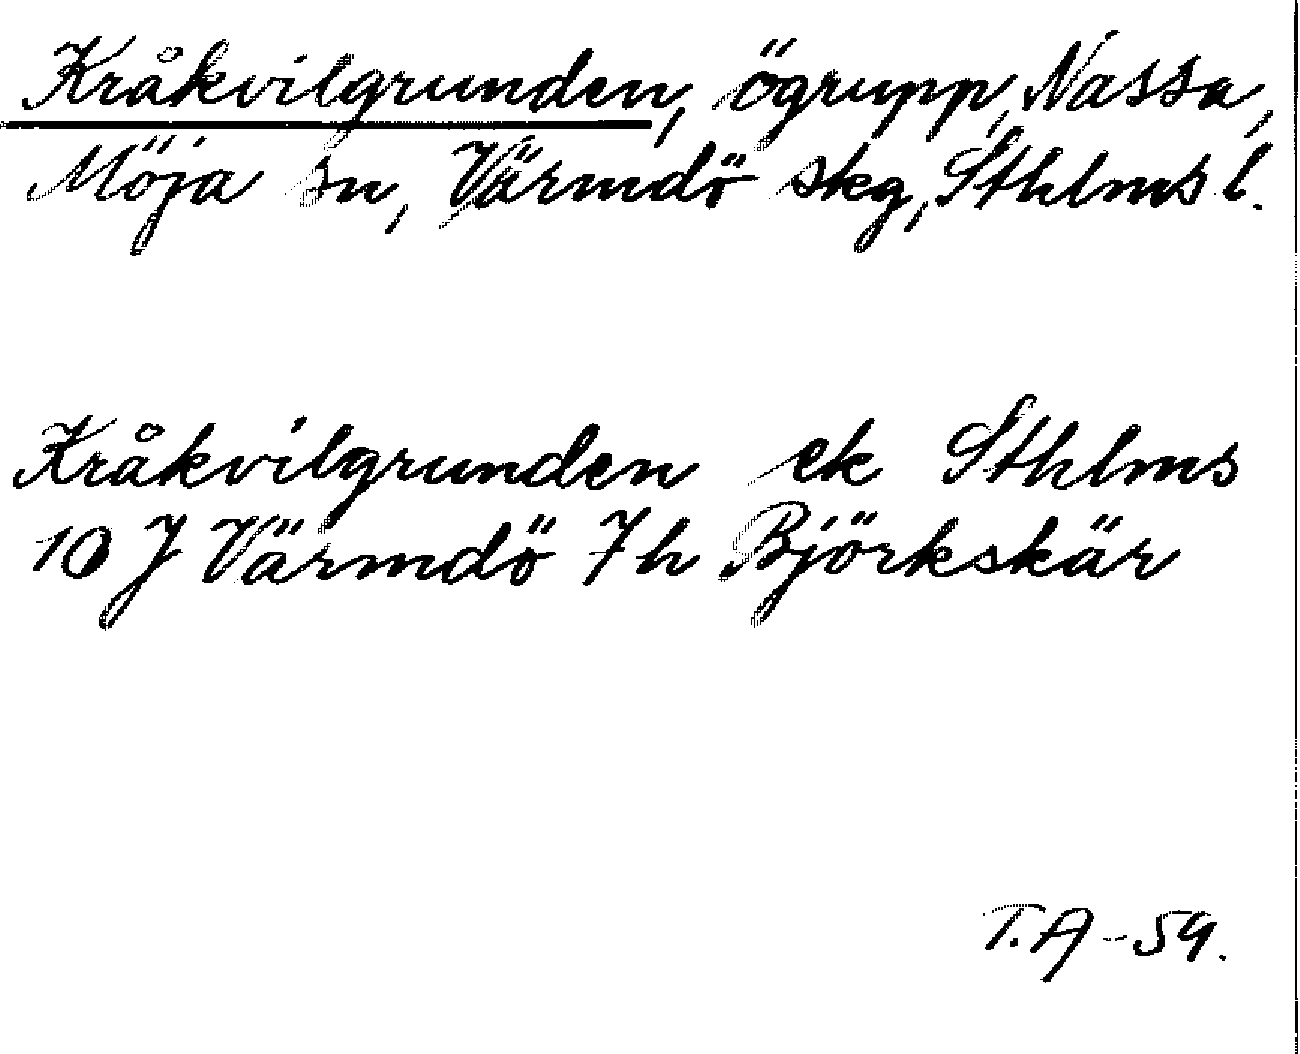 Kråkvilgrunden, ögrupp, Nassa,
Möja sn, Värmdö skg, Sthlms l.
Kråkvilgrunden ek Sthlms
10 J Värmdö 7h Björkskär
T.A-59.